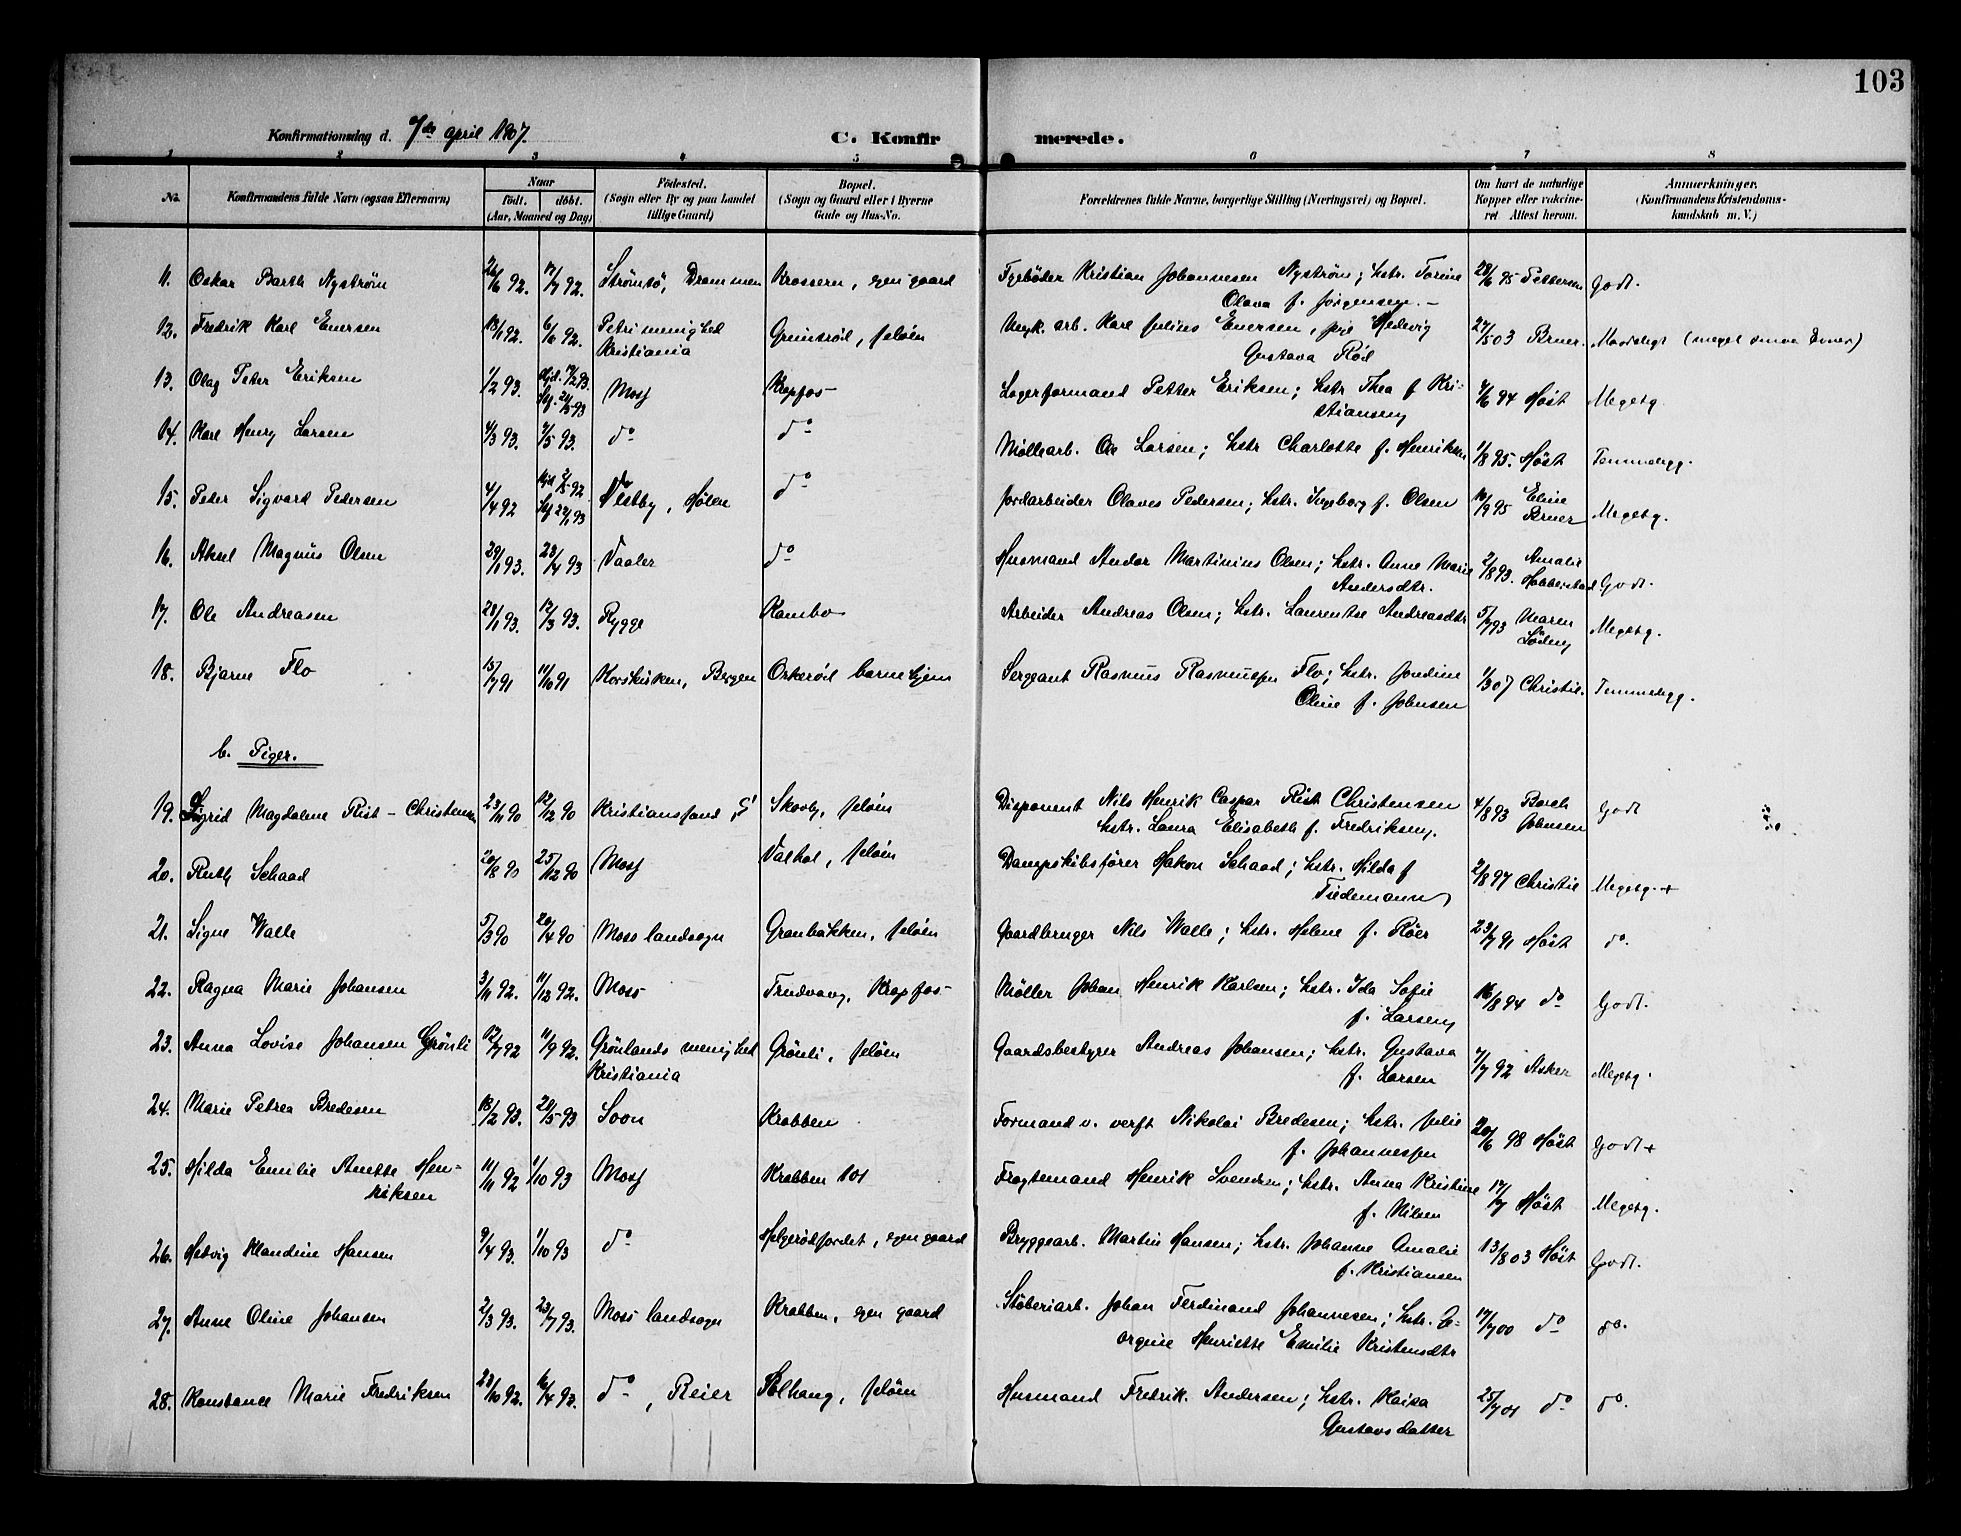 103
Konfirmationsdag d. 7de april 1907.
C. Konfirmerede.
1 2 3 4 5 6 7 8
No. Konfirmandens fulde Navn (ogsaa Efternavn) Naar født. døbt. (Aar, Maaned og Dag) Fødested. (Sogn eller By og paa Landet tillige Gaard) Bopæl. (Sogn og Gaard eller i Byerne Gade og Hus-No. Forældrenes fulde Navne, borgerlige Stilling (Næringsvei) og Bopæl. Om havt de naturlige Kopper eller vaccineret Attest herom. Anmærkninger. (Konfirmandens Kristendomskundskab m. V.)
11. Oskar Barth Nyström 26/6 92. 17/7 92. Strömsö, Drammen Krossern, egen gaard Fyrböder Kristian Johannesen Nyström; hstr. Torine 28/6 95 Pettersen Godt.
Olava f. Jörgensen. -
12. Fredrik Karl Enersen 18/1 92. 6/6 92. Petri menighed Grimsröd, Jelöen Ungk. arb. Karl Julius Enersen, pige Hedevig 27/5 03 Bruer. Maadeligt (meget smaa Evner)
Kristiania Gustava Röd
13. Olaf Peter Eriksen 1/2 93. Hjd. 14/2 93. Moss Kopfos Lagerformand Petter Eriksen; hstr Thea f Kri- 7/6 94 Höst Megetg.
Stf. 21/5 93 stiansen
14. Karl Henry Larsen 4/3 93. 7/5 93. do do Möllearb. Ole Larsen; hstr Charlotte f. Henriksen 1/8 95. Höst Temmeligg.
15. Peter Sigvard Pedersen 4/4 92 Hjd 2/5 92 Vestby, Hölen do Jordarbeider Olaves Pedersen; hstr. Ingeborg f. Olsen 10/9 95 Eline Megetg.
Stf 22/1 93 Bruer
16. Aksel Magnus Olsen 29/1 93. 23/4 93 Vaaler do Husmand Andor Martinius Olsen; hstr. Anne Marie 2/8 93. Amalie Godt.
Andersdtr. Hobberstad
17. Ole Andreasen 28/1 93. 12/3 93. Rygge Kambo Arbeider Andreas Olsen; hstr. Laurentse Andreasdtr 5/7 93 Maren Megetg.
18. Bjarne Flo 15/7 91 11/10 91 Korskirken, Bergen Orkeröd barnehjem Sergeant Rasmus Rasmussen Flo; hstr. Jondine 1/3 07 Christie. Temmeligg.
Oline f. Johnsen
b. Piger.
19. Sigrid Magdalene Rist - Christensen 23/11 90 12/12 90 Kristianssand, S Skovly, Jelöen Disponent Nils Henrik Caspar Rist Christensen 4/8 93 Borch Godt
hstr. Laura Elisabeth f. Fredriksen. Johnsen
20. Ruth Schaad 20/8 90 25/12 90 Moss Valhal, Jelöen Dampskibsförer Hakon Schaad; hstr. Hilda f 2/8 97 Christie Megetg. +
Tiedemann
21. Signe Walle 5/3 90 20/4 90 Moss landsogn Granbakken, Jelöen Gaardbruger Nils Walle; hstr. Helene f. Röer 23/7 91 Höst do.
22. Ragna Marie Johansen 3/11 92. 11/12 92. Moss Trudvang, Kopfos Möller Johan Henrik Karlsen; hstr. Ida Sofie 16/8 94 do Godt.
f. Larsen
23. Anna Lovise Johansen Grönli 12/7 92 11/9 92. Grönlands menighed Grönli, Jelöen Gaardsbestyrer Andreas Johansen; hstr. Gustava 7/7 92 Asker Megetg.
Kristiania f. Larsen
24. Marie Petrea Bredesen 18/2 93. 28/5 93 Soon Krabben Formand v. verft Nikolai Bredesen; hstr. Julie 20/6 98 Höst Godt +
f. Johannessen
25. Hilda Emilie Anette Hen- 11/11 92 1/10 93 Moss Krabben 101 Fragtemand Henrik Svendsen; hstr. Anna Kristine 17/7 Höst Megetg.
riksen f. Nilsen
26. Hedvig Klaudine Hansen 9/4 93. 1/10 93 do Helgerödjordet, egen gaard Bryggearb. Martin Hansen; hstr. Johanne Amalie 13/8 03 Höst Godt.
f. Kristiansen
27. Anne Oline Johansen 2/3 93. 23/7 93. Moss landsogn Krabben, egen gaard Stöberiarb. Johan Ferdinand Johannesen; hstr. Ge- 17/7 00 do do.
orgine Henriette Emilie Kristensdtr
28. Konstance Marie Fredriksen 23/10 92. 16/4 93. do, Reier Solhaug, Jelöen Husmand Fredrik Andersen; hstr. Kaisa 25/7 01 do do.
Gustavsdatter